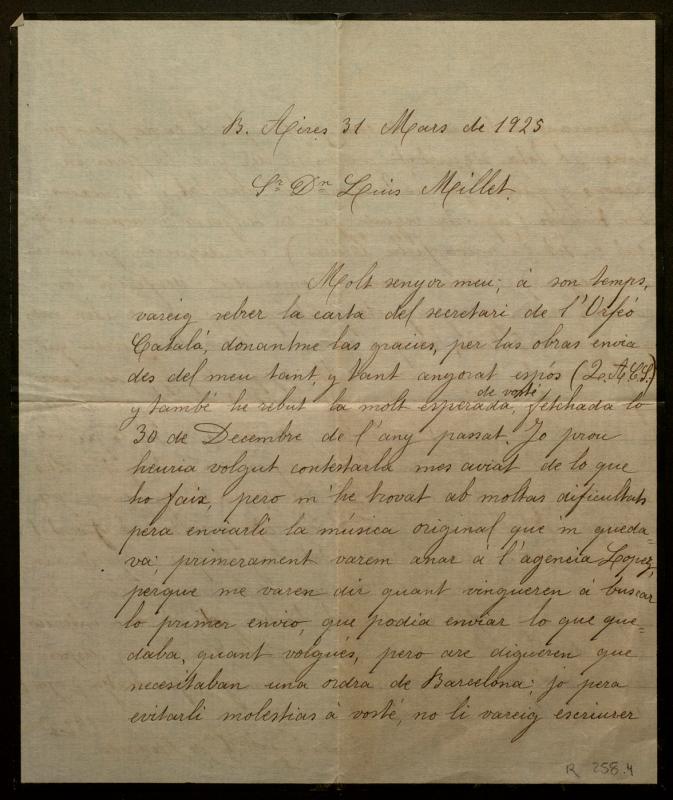 B. Aires 31 Mars de 1925
Sr. Dn. Lluis Millet.
Molt senyor meu; á son temps,
vareig rebrer la carta del secretari de l'Orfeó
Català, donantme las gracies, per las obras envia
des del meu tant, y tant anyorat espós (Q.A.C.S.)
de vosté
y també he rebut la molt esperada, fetchada lo
30 de Decembre de l'any passat. Jo prou
heuria volgut contestarla mes aviat de lo que
ho faix, pero m'he trovat ab moltas dificultats
pera enviarli la música original que m queda=
va; primerament varem anar á l'agencia Lopez,
perque me varen dir quant vingueren á buscar
lo primer envio, que podia enviar lo que que=
daba, quant volgués, pero are digueren que
necesitaban una ordra de Barcelona; jo pera
evitarli molestias á vosté, no li vareig escriurer
R 258.4